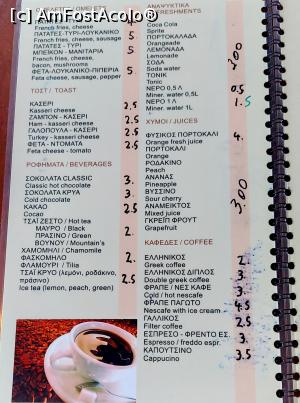 [c] AmFostAcolo®]
French fries, cheese
ΠΑΤΑΤΕΣ-ΤΥΡΙ-ΛΟΥΚΑΝΙΚΟ 5
French fries, cheese, sausage
ΠΑΤΑΤΕΣ - ΤΥΡΙ
ΜΠΕΪΚΟΝ - ΜΑΝΙΤΑΡΙΑ 5
French fries, cheese,
bacon, mushrooms
ΦΕΤΑ-ΛΟΥΚΑΝΙΚΟ-ΠΙΠΕΡΙΑ 5.
Feta cheese, sausage, pepper
ΤΟΣΤ / TOAST
ΚΑΣΕΡΙ 2,5
Kasseri cheese
ΖΑΜΠΟΝ - ΚΑΣΕΡΙ 2,5
Ham - kasseri cheese
ΓΑΛΟΠΟΥΛΑ - ΚΑΣΕΡΙ 2,5
Turkey - kasseri cheese
ΦΕΤΑ - ΝΤΟΜΑΤΑ 2,5
Feta cheese - tomato
ΡΟΦΗΜΑΤΑ / BEVERAGES
ΣΟΚΟΛΑΤΑ CLASSIC 3.
Classic hot chocolate
ΣΟΚΟΛΑΤΑ ΚΡΥΑ 3.
Cold chocolate
ΚΑΚΑΟ 2,5
Cocao
ΤΣΑΪ ΖΕΣΤΟ / Hot tea
ΜΑΥΡΟ / Black 2.
ΠΡΑΣΙΝΟ / Green
ΒΟΥΝΟΥ / Mountain's
ΧΑΜΟΜΗΛΙ / Chamomile
ΦΑΣΚΟΜΗΛΟ 2.
ΦΛΑΜΟΥΡΙ / Tilia
ΤΣΑΪ ΚΡΥΟ (λεμόνι, ροδάκινο,
πράσινο) 2,5
Ice tea (lemon, peach, green)
ΑΝΑΨΥΚΤΙΚΑ
REFRESHMENTS
Coca Cola
Sprite
ΠΟΡΤΟΚΑΛΑΔΑ
Orangeade
ΛΕΜΟΝΑΔΑ 3,00
Lemonade
ΣΟΔΑ
Soda water
ΤΟΝΙΚ
Tonic
ΝΕΡΟ 0,5 Λ 0,5
Miner. water 0,5L
ΝΕΡΟ 1 Λ 1.5
Miner. water 1L
ΧΥΜΟΙ / JUICES
ΦΥΣΙΚΟΣ ΠΟΡΤΟΚΑΛΙ 4.
Orange fresh juice
ΠΟΡΤΟΚΑΛΙ
Orange
ΡΟΔΑΚΙΝΟ
Peach
ΑΝΑΝΑΣ
Pineapple
ΒΥΣΣΙΝΟ
Sour cherry
ΑΝΑΜΕΙΚΤΟΣ 3,00
Mixed juice
ΓΚΡΕΙΠ ΦΡΟΥΤ
Grapefruit
ΚΑΦΕΔΕΣ / COFFEE
ΕΛΛΗΝΙΚΟΣ 2.
Greek coffee
ΕΛΛΗΝΙΚΟΣ ΔΙΠΛΟΣ 3.
Double greek coffee
ΦΡΑΠΕ / ΝΕΣ ΚΑΦΕ 3.
Cold / hot nescafe
ΦΡΑΠΕ ΠΑΓΩΤΟ 4,5
Nescafe with ice cream
ΓΑΛΛΙΚΟΣ 2,5
Filter coffee
ΕΣΠΡΕΣΟ - ΦΡΕΝΤΟ ΕΣ. 3.
Espresso / freddo espr.
ΚΑΠΟΥΤΣΙΝΟ 3.5
Cappucino